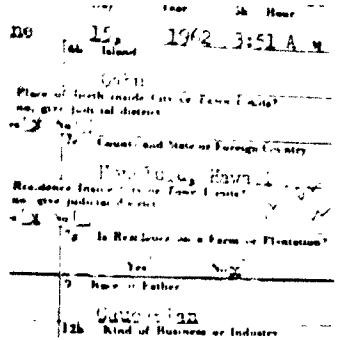 Year 5b Hour
no 15, 1962 3:51 A M
6b Island
Place of Birth Inside City or Town Limits?
no, give judicial district
No
County and State or Foreign Country
Honolulu, Hawa
Residence Inside City or Town Limits?
no give judicial district
X No
Is Residence on a Farm or Plantation?
Yes No X
9 Race of Father
Caucasian
12b Kind of Business or Industry